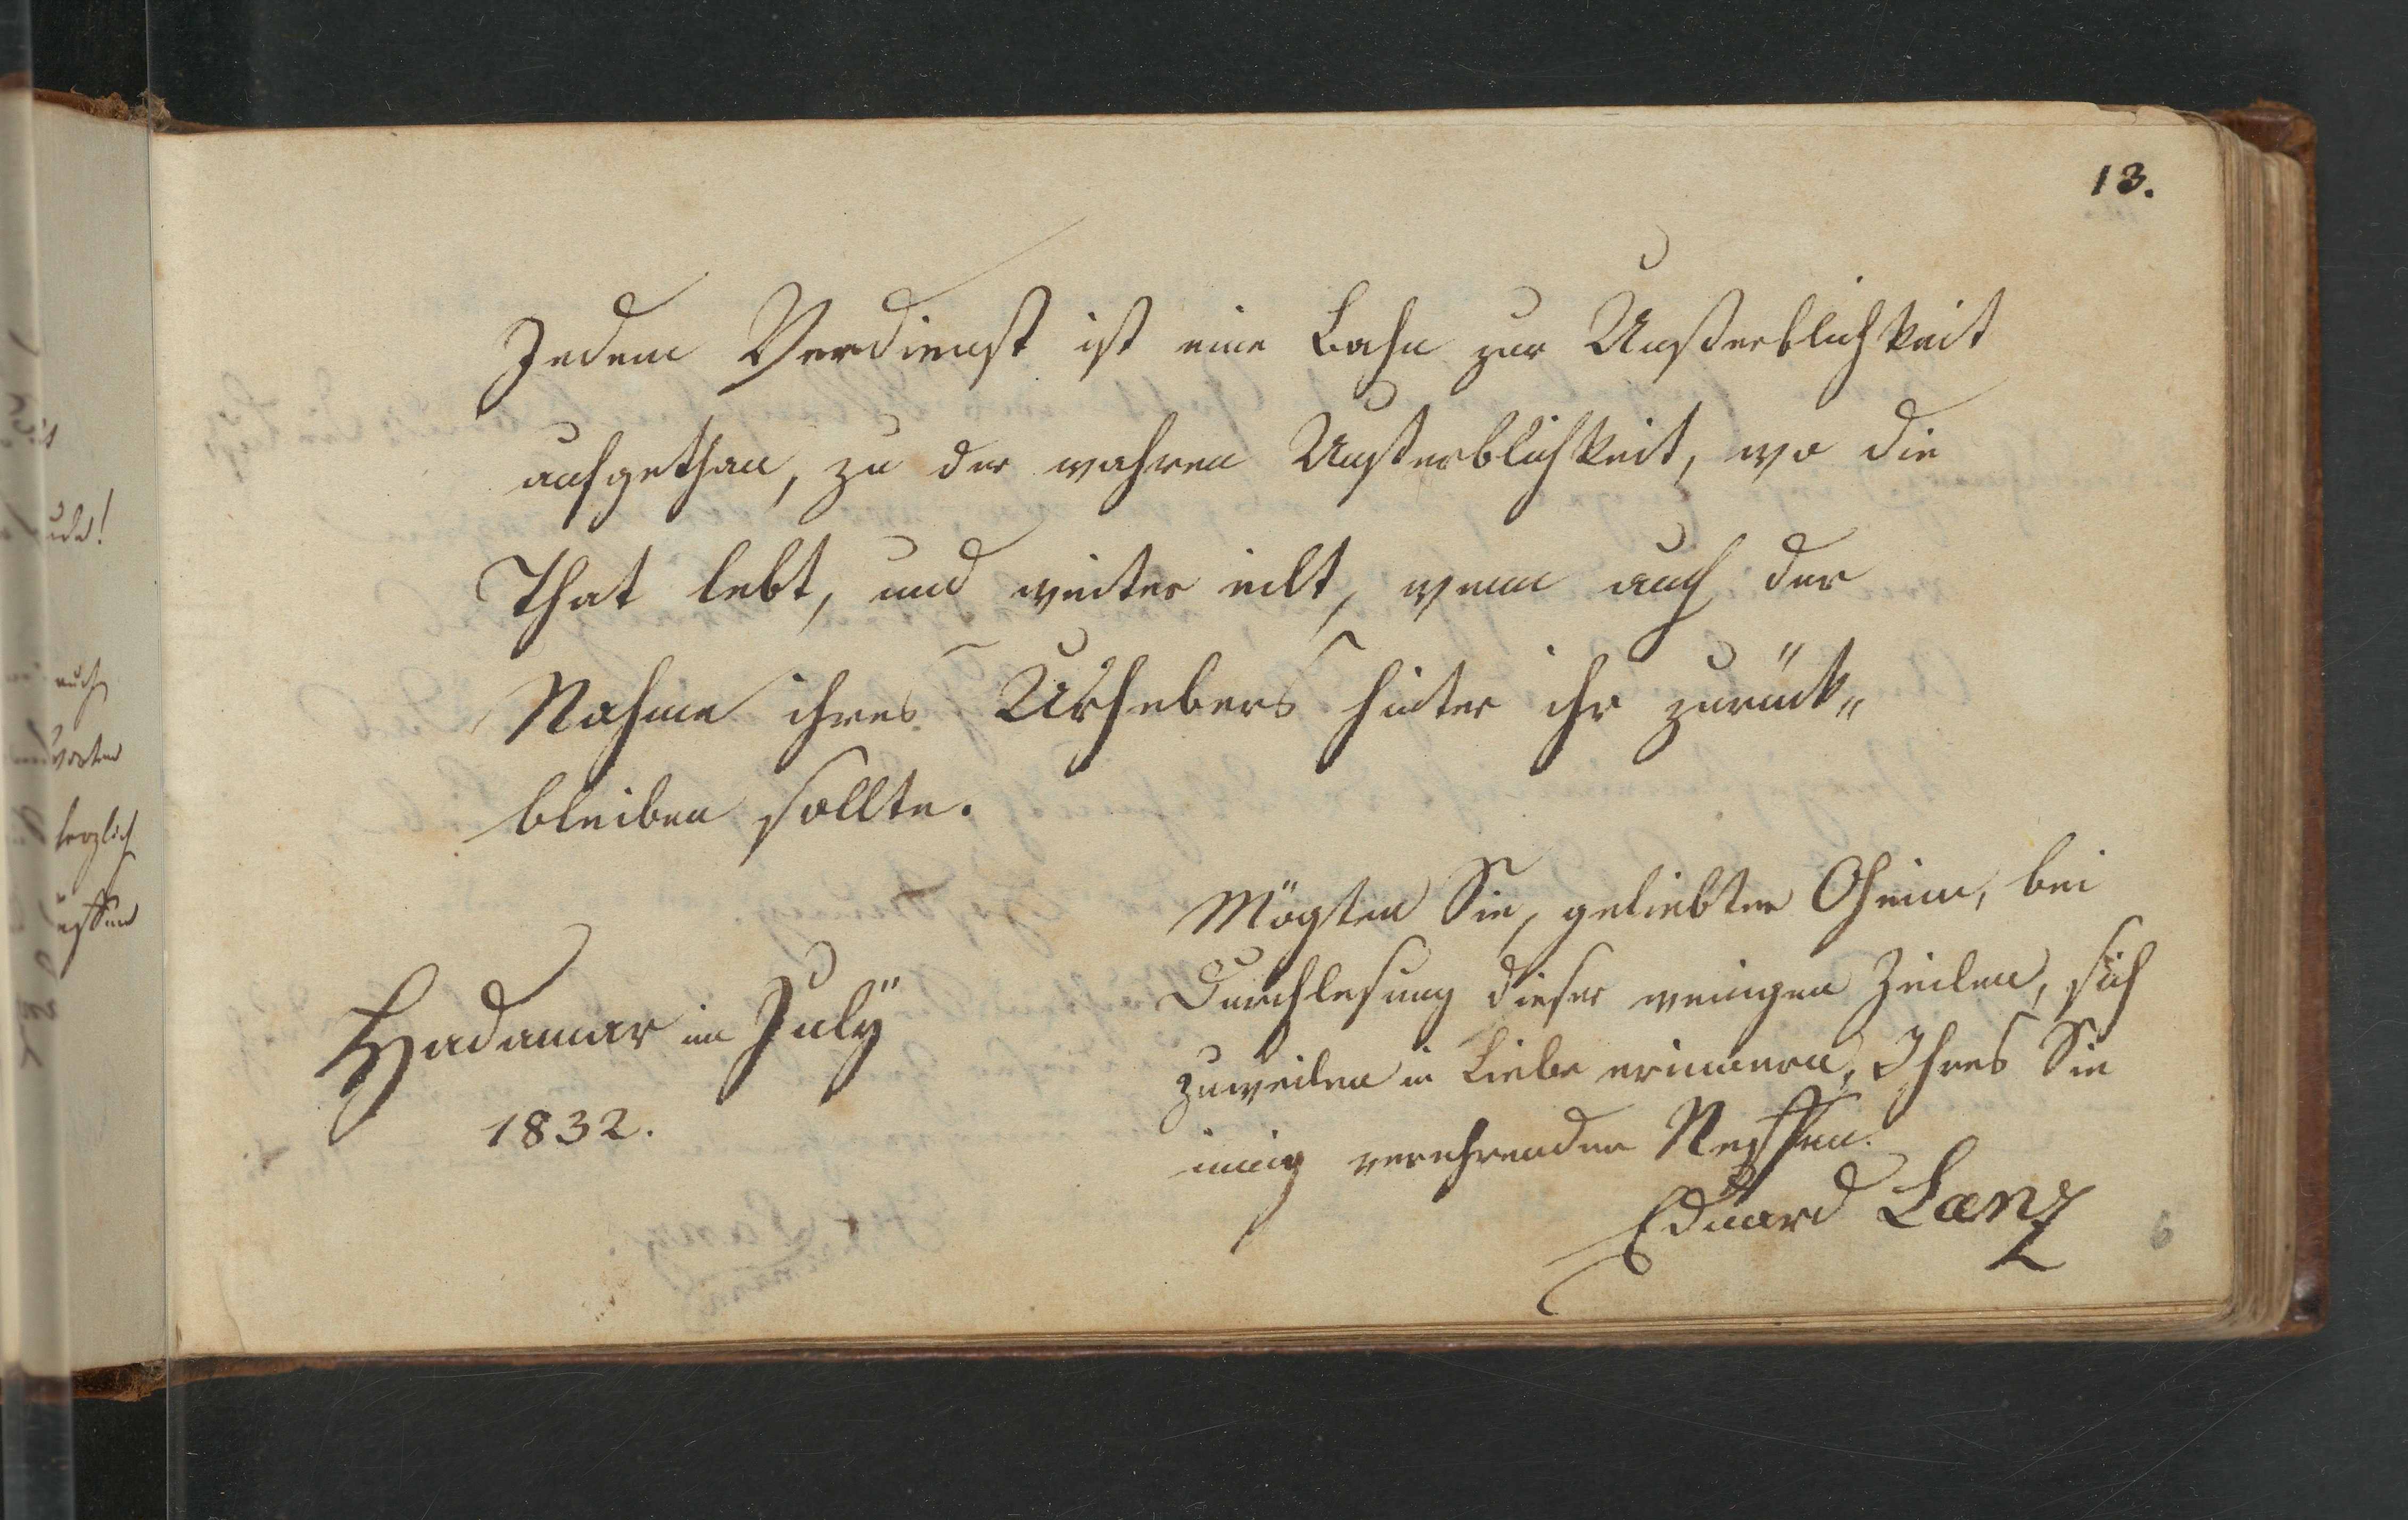 13.
Jedem Verdienst ist eine Bahn zur Unsterblichkeit
aufgethan, zu der wahren Unsterblichkeit, wo die
That lebt, und weiter eilt, wenn auch der
Nahme ihres Urhebers hinter ihr zurück„
bleiben sollte.
Mögten Sie, geliebter Oheim, bei
Durchlesung dieser wenigen Zeilen, sich
zuweilen in Liebe erinnern, Ihres Sie
innig verehrenden Neffen.
Eduard Lanz
Hadamar im July
1832.
6